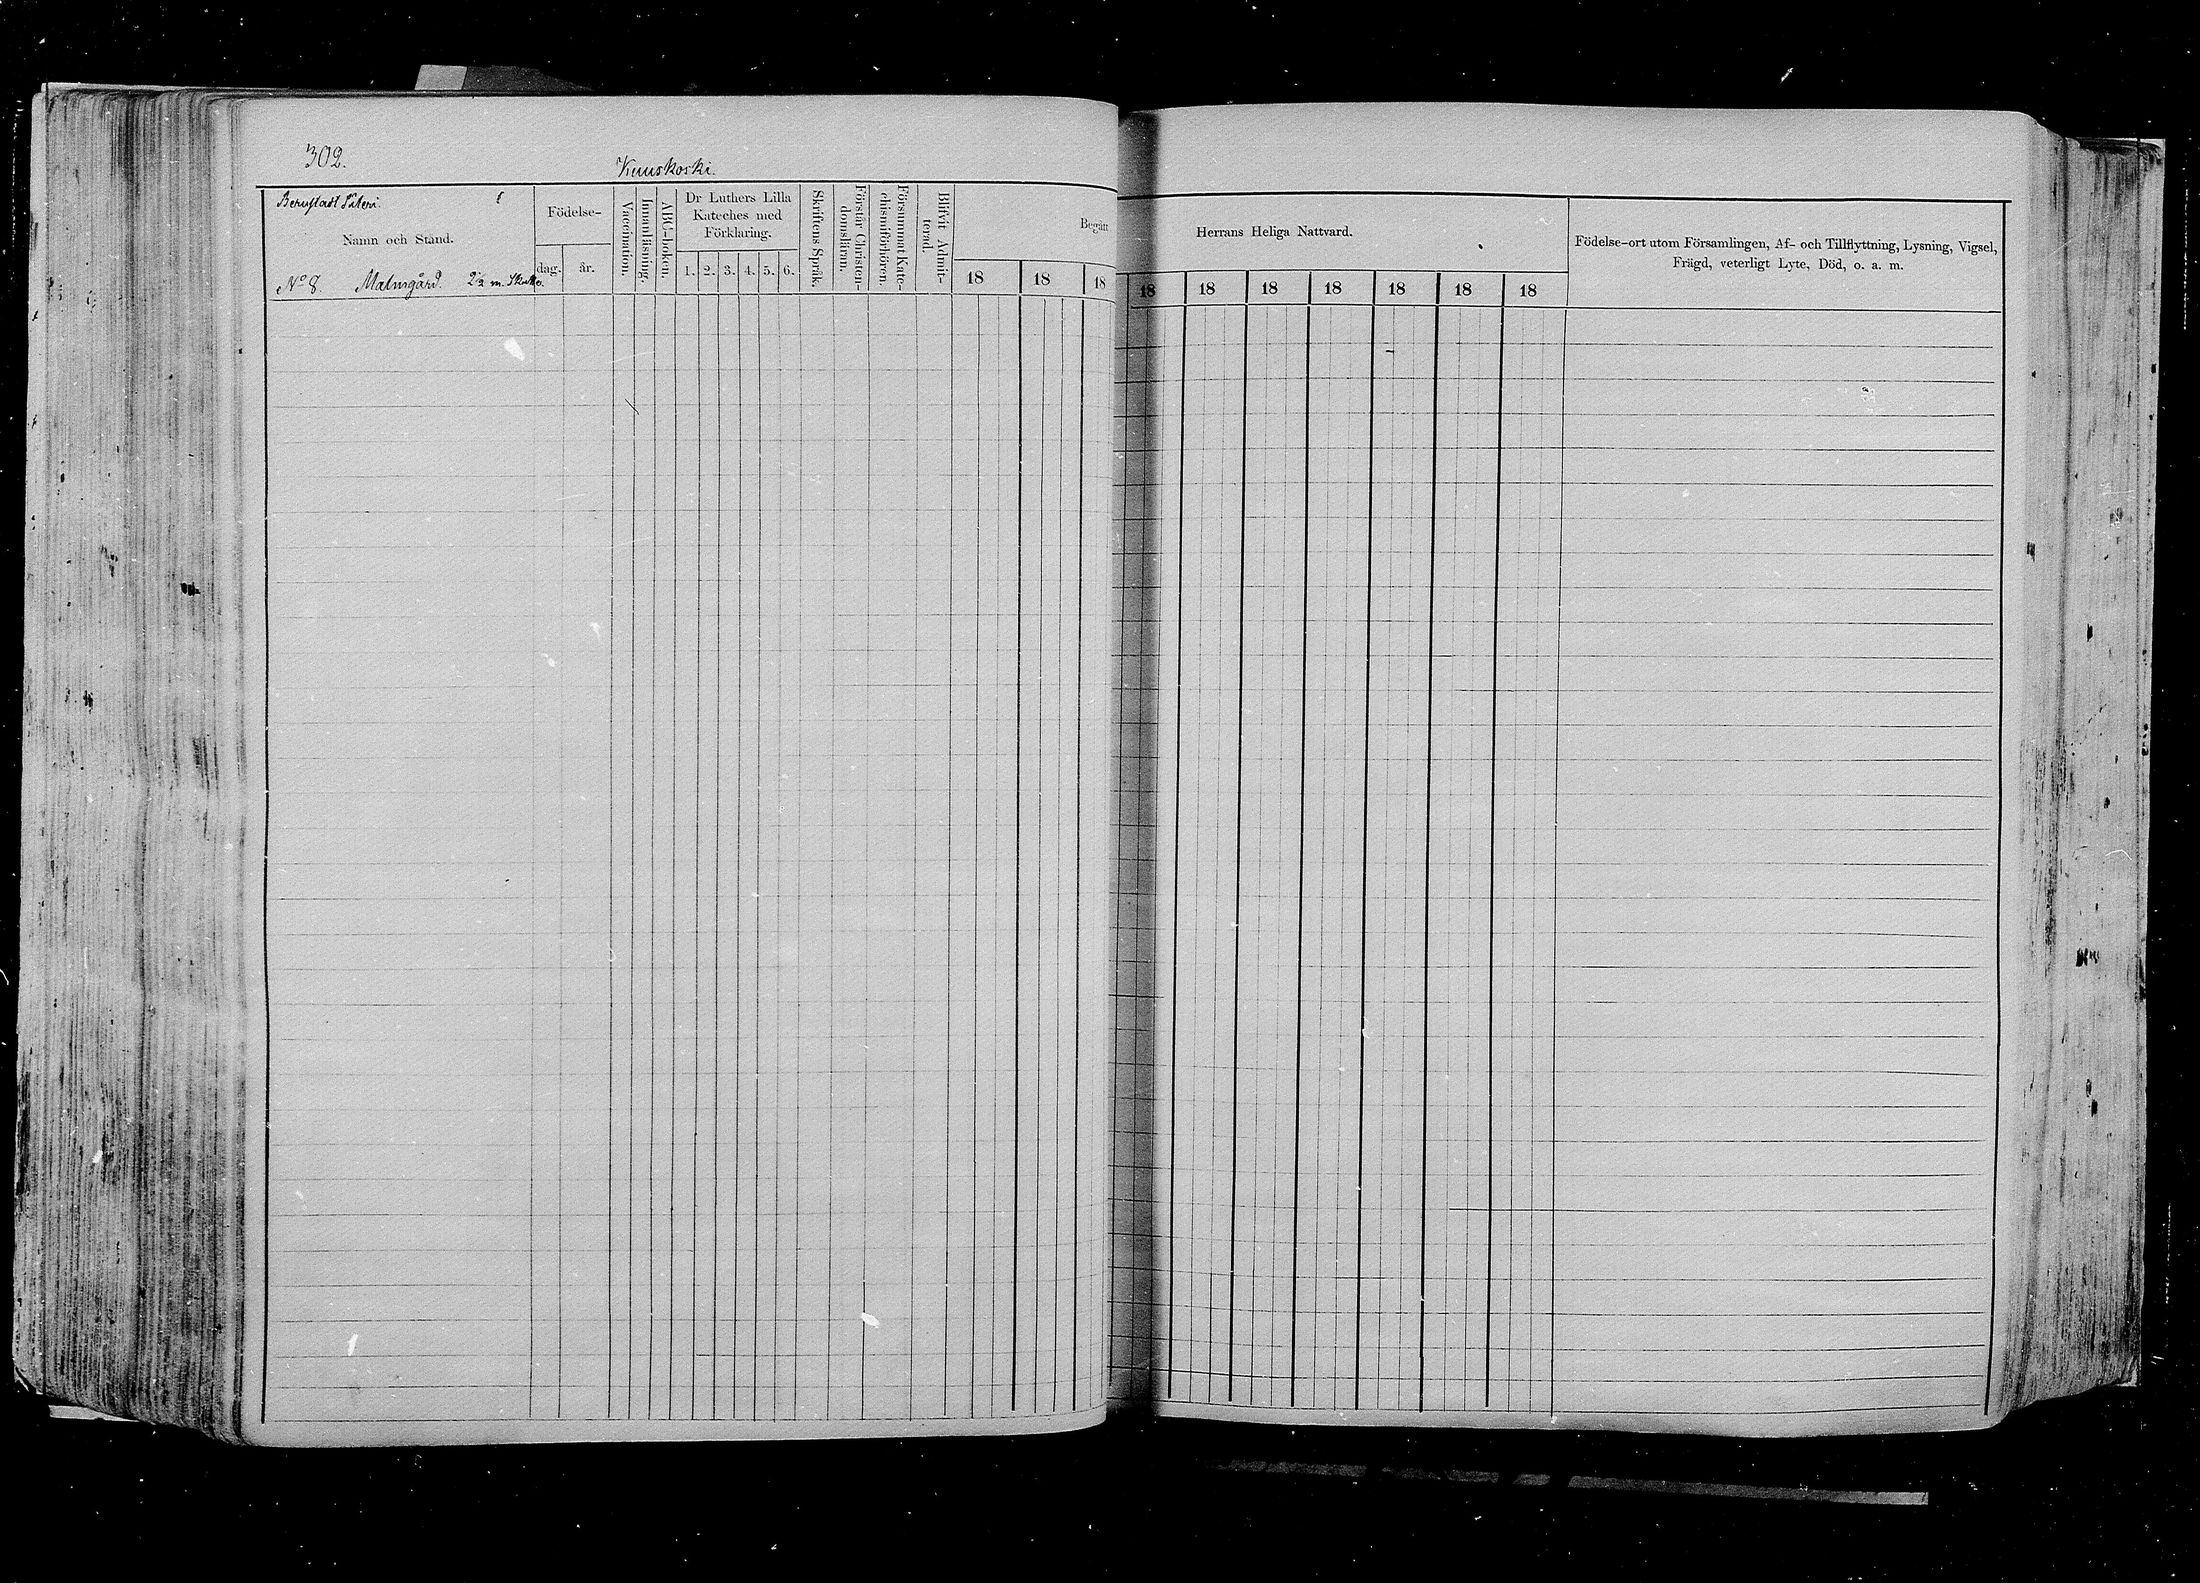 302.
Kuuskoski.
Bernstadt Säteri
Namn och Stånd.
No 8. Malmgård. 2½ m. Skatte.
Födelse-
dag. år.
Vaccination.
Innanläsning.
ABC-boken.
Dr Luthers Lilla
Kateches med
Förklaring.
1. 2. 3. 4. 5. 6.
Skriftens Språk.
Förstår Christen-
domsläran.
Försummat Kate-
chismiförhören.
Blifvit Admit-
terad.
Begått
18 18 18
Herrans Heliga Nattvard.
18 18 18 18 18 18 18
Födelse-ort utom Församlingen, Af- och Tillflyttning, Lysning, Vigsel,
Frägd, veterligt Lyte, Död, o. a. m.